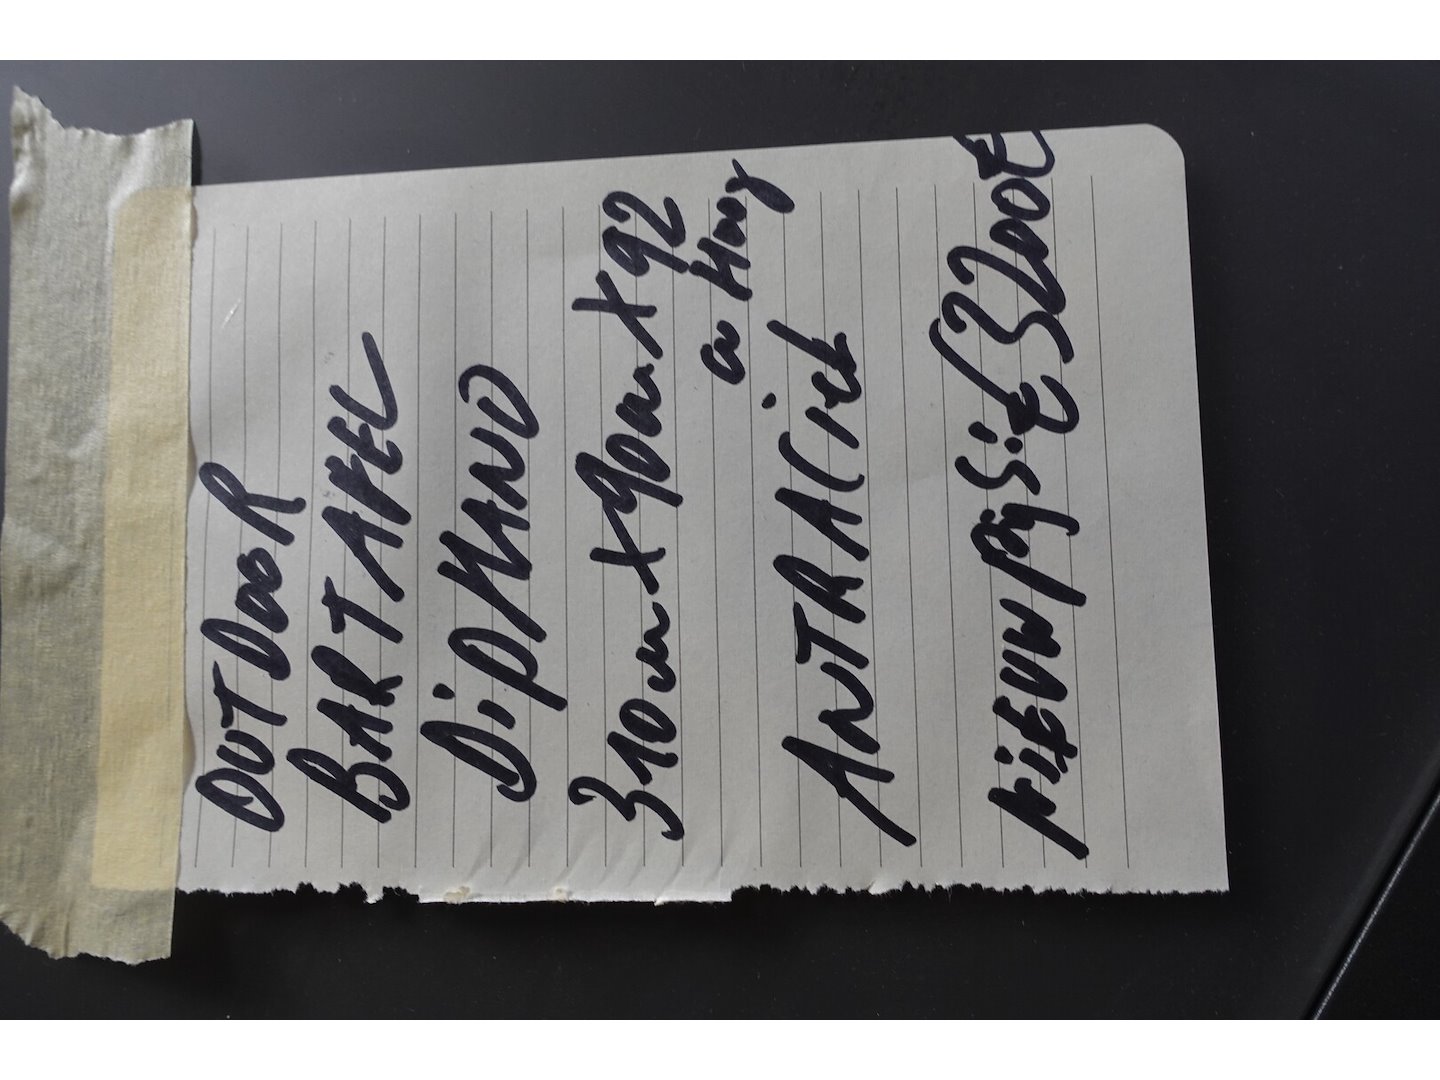 OUTDOOR
BARTAFEL
DiPHANO
310cm x 90cm x 92
cm Hoog
ANTRACiet
NiEUWPRijS: € 3200€